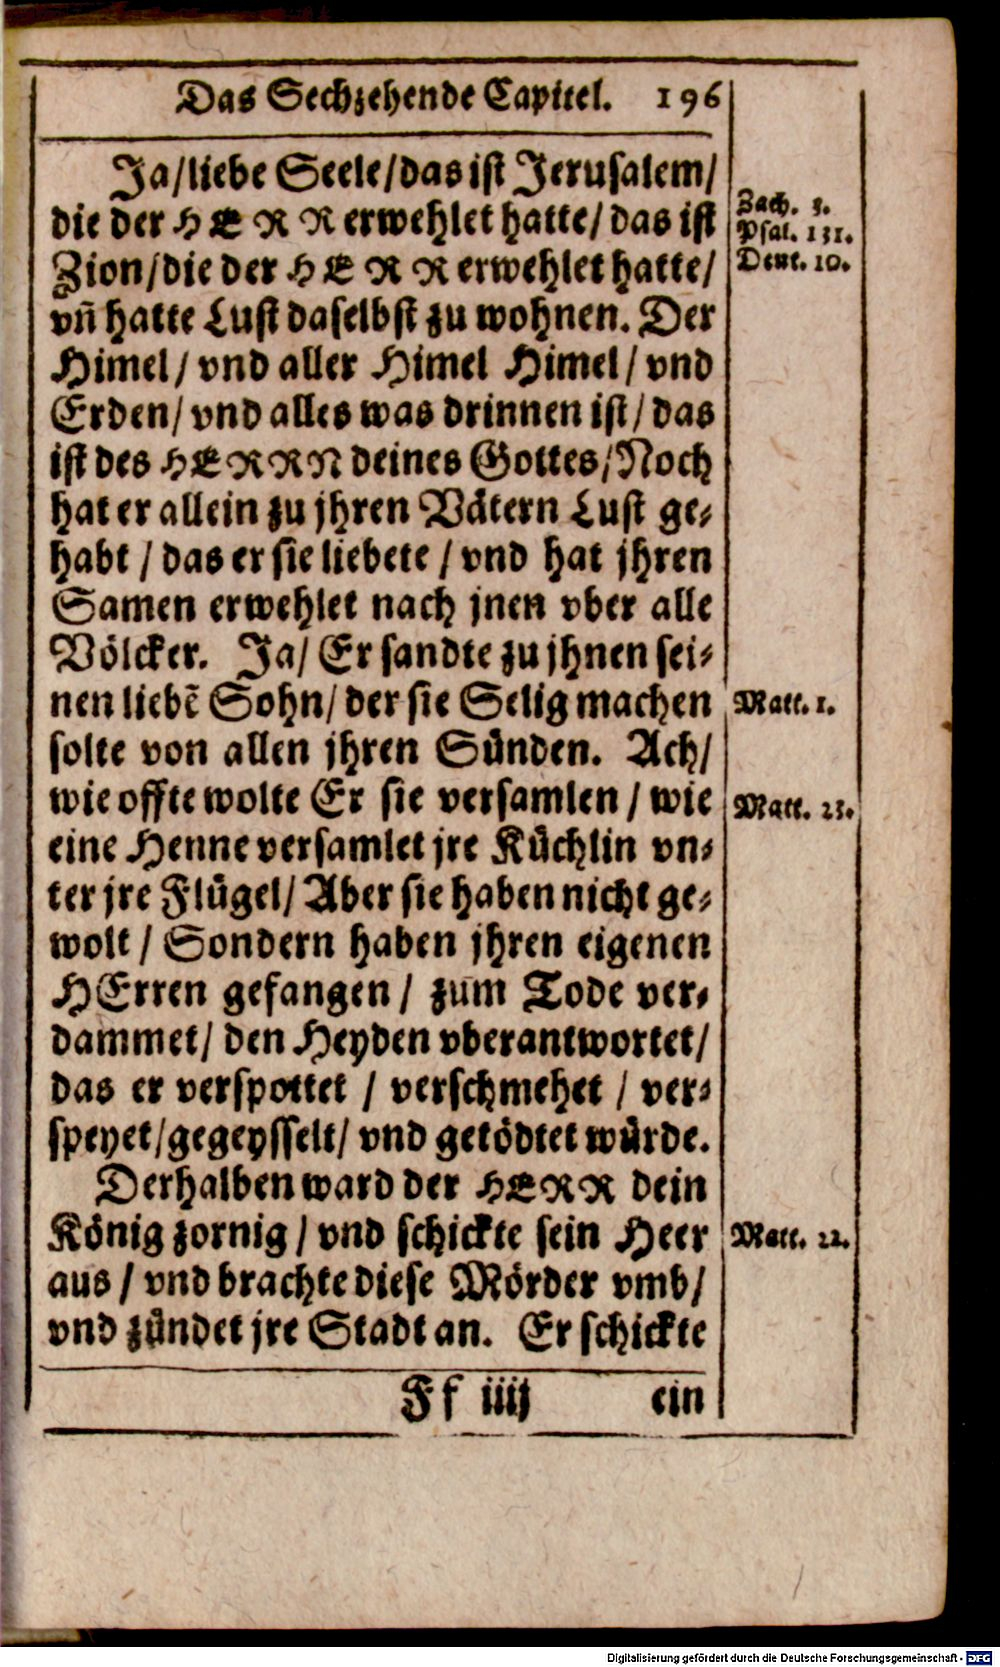 Das Sechzehende Capitel. 196
Ja/liebe Seele/das ist Jerusalem/
die der HERR erwehlet hatte/das ist
Zion/die der HERR erwehlet hatte/
vñ hatte Lust daselbst zu wohnen. Der
Himel/ vnd aller Himel Himel/ vnd
Erden/ vnd alles was drinnen ist/ das
ist des HERRN deines Gottes/Noch
hat er allein zu jhren Vätern Lust ge-
habt / das er sie liebete / vnd hat jhren
Samen erwehlet nach jnen vber alle
Völcker. Ja/ Er sandte zu jhnen sei-
nen liebẽ Sohn/ der sie Selig machen
solte von allen jhren Sünden. Ach/
wie offte wolte Er sie versamlen / wie
eine Henne versamlet jre Küchlin vn-
ter jre Flügel/ Aber sie haben nicht ge-
wolt / Sondern haben jhren eigenen
HErren gefangen / zum Tode ver-
dammet/ den Heyden vberantwortet/
das er verspottet / verschmehet / ver-
speyet/gegeysselt/ vnd getödtet würde.
Derhalben ward der HERR dein
König zornig / vnd schickte sein Heer
aus / vnd brachte diese Mörder vmb/
vnd zündet jre Stadt an. Er schickte
Ff iiij ein
Zach. 3.
Psal. 131.
Deut. 10.
Matt. 1.
Matt. 23.
Matt. 22.
Digitalisierung gefördert durch die Deutsche Forschungsgemeinschaft - DFG